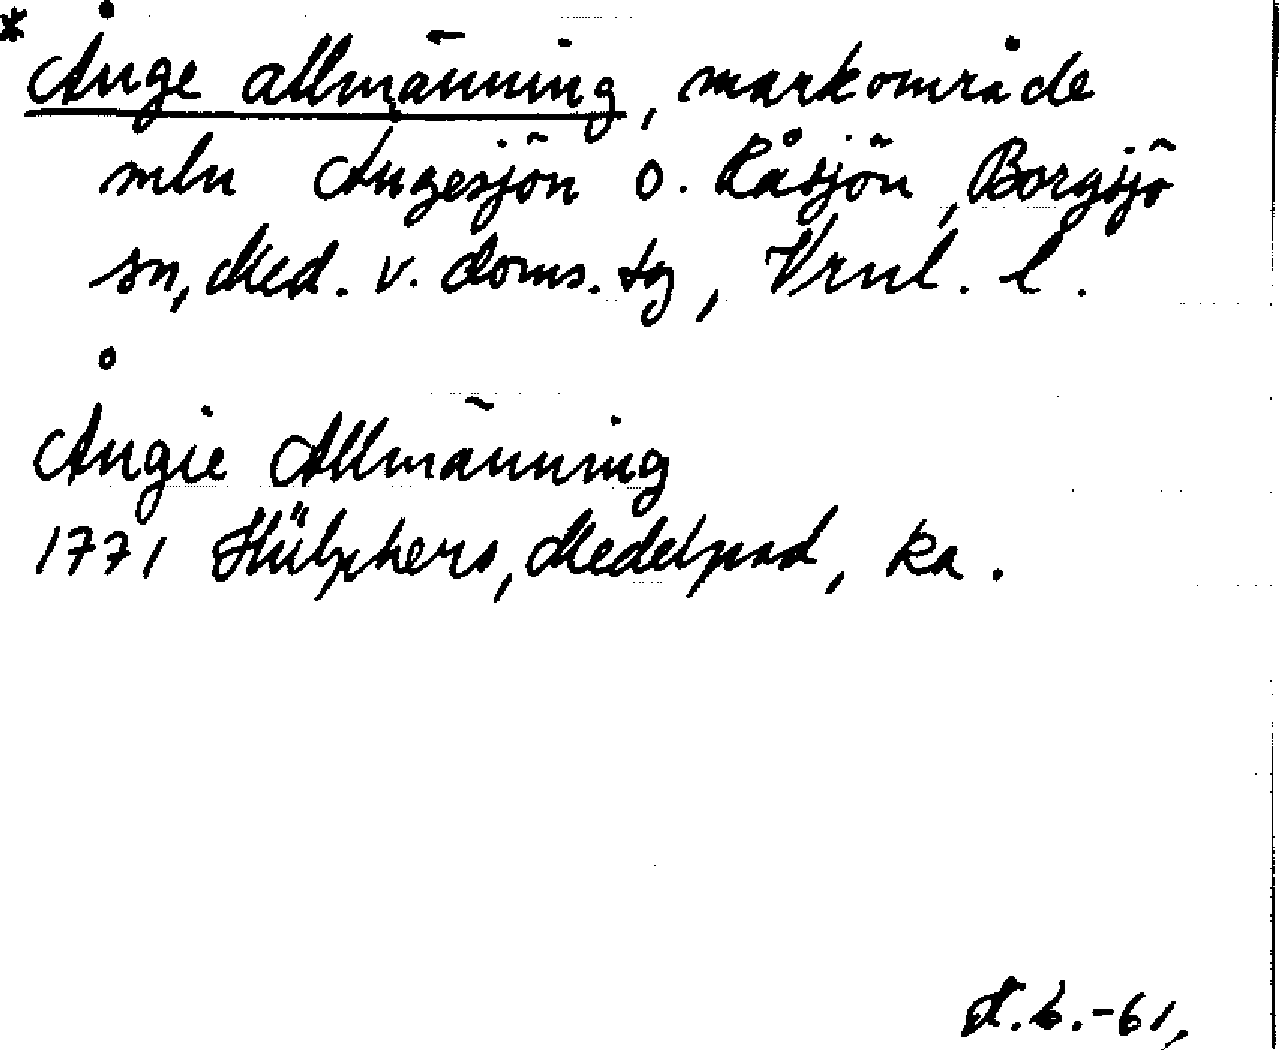 * Ånge allmänning, markområde
mln Ångesjön o. Råsjön, Borgsjö
sn, Med. v. doms. tg, Vrnl. l.
Ångie Allmänning
1771 Hülphers, Medelpad, ka.
-61,